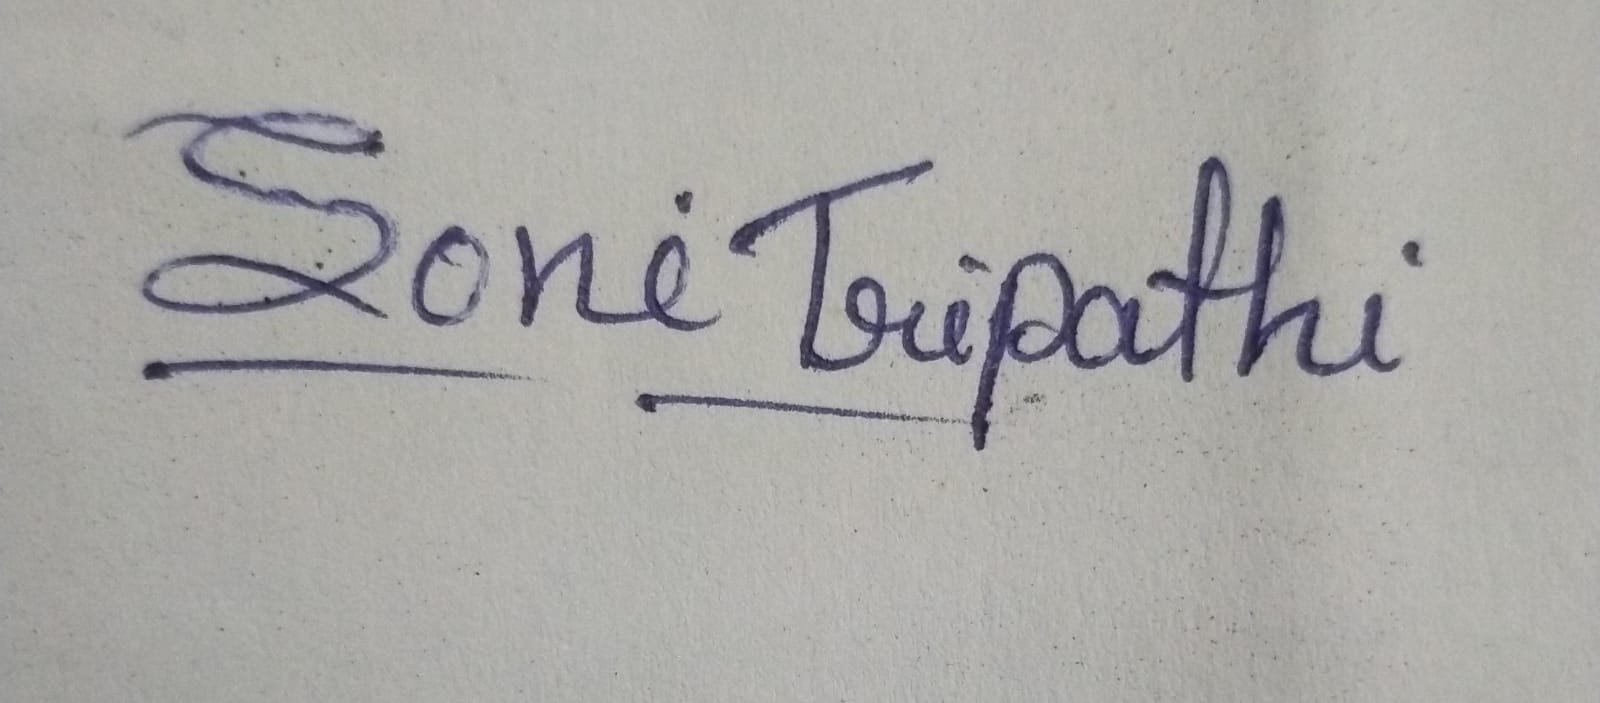 Soni Tripathi